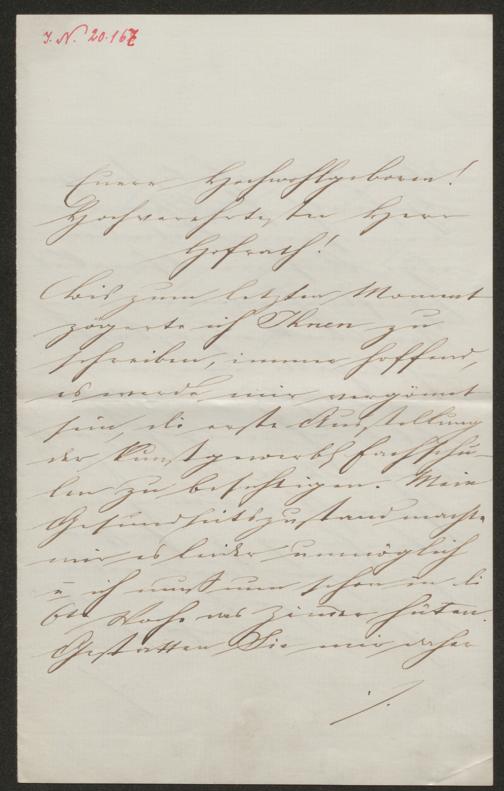 J. N. 20.167
Euere Hochwohlgeboren!
Hochverehrtester Herr
Hofrath!
Bis zum letzten Moment
zögerte ich Ihnen zu
schreiben, immer hoffend,
es werde mir vergönnt
sein, die erste Ausstellung
der kunstgewerbl. Fachschu-
len zu besichtigen. Mein
Gesundheitszustand machte
mir es leider unmöglich
u ich muß nun schon in die
6te Woche das Zimmer hüten.
Gestatten Sie mir daher